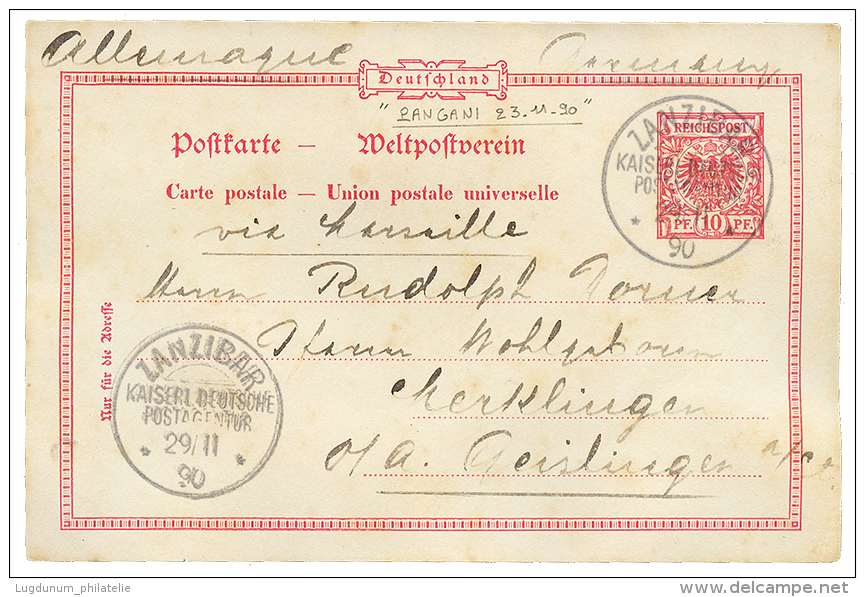 Allemagne Germany
Deutschland
"PANGANI 23.11-90"
Postkarte — Weltpostverein
Carte postale — Union postale universelle
REICHSPOST
PF. 10 PF.
ZANZIBAR
KAISERL. DEUTSCHE
POSTAGENTUR
29/11
90
via Marseille
Herrn Rudolph
Merklingen
O/A. Geislingen
Nur für die Adresse
ZANZIBAR
KAISERL. DEUTSCHE
POSTAGENTUR
29/11
90
Lugdunum_philatelie
delcampe.net